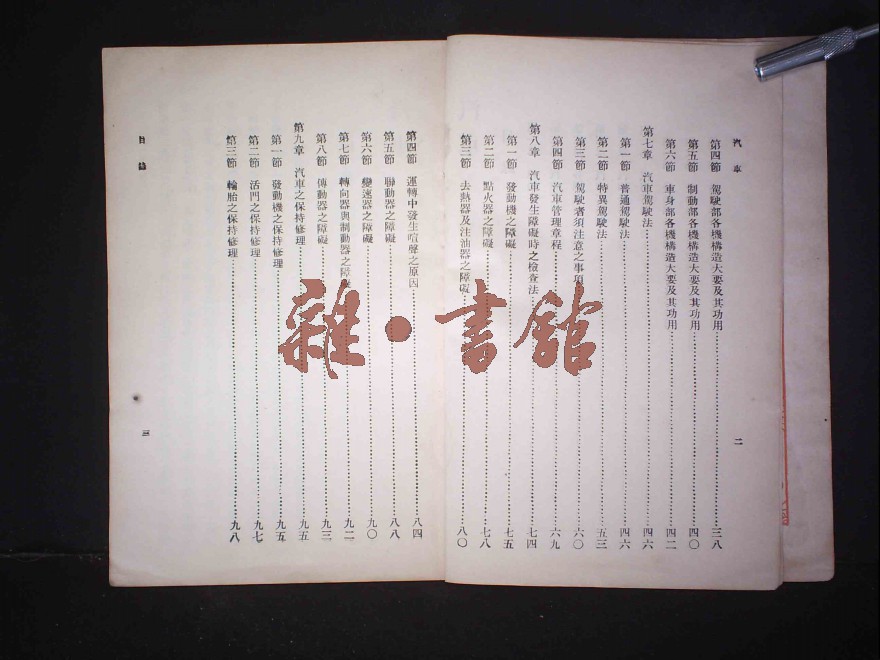 汽車
第四節 駕駛部各機構造大要及其功用 三八
第五節 制動部各機構造大要及其功用 四〇
第六節 車身部各機構造大要及其功用 四二
第七章 汽車駕駛法 四六
第一節 普通駕駛法 四六
第二節 特異駕駛法 五三
第三節 駕駛者須注意之事項 六〇
第四節 汽車管理章程 六九
第八章 汽車發生障礙時之檢查法 七四
第一節 發動機之障礙 七五
第二節 點火器之障礙 七八
第三節 去熱器及注油器之障礙 八〇
二
第四節 運轉中發生喧聲之原因 八四
第五節 聯動器之障礙 八八
第六節 變速器之障礙 九〇
第七節 轉向器與制動器之障礙 九二
第八節 傳動器之障礙 九三
第九章 汽車之保持修理 九五
第一節 發動機之保持修理 九五
第二節 活門之保持修理 九七
第三節 輪胎之保持修理 九八
目錄
三
雜·書館